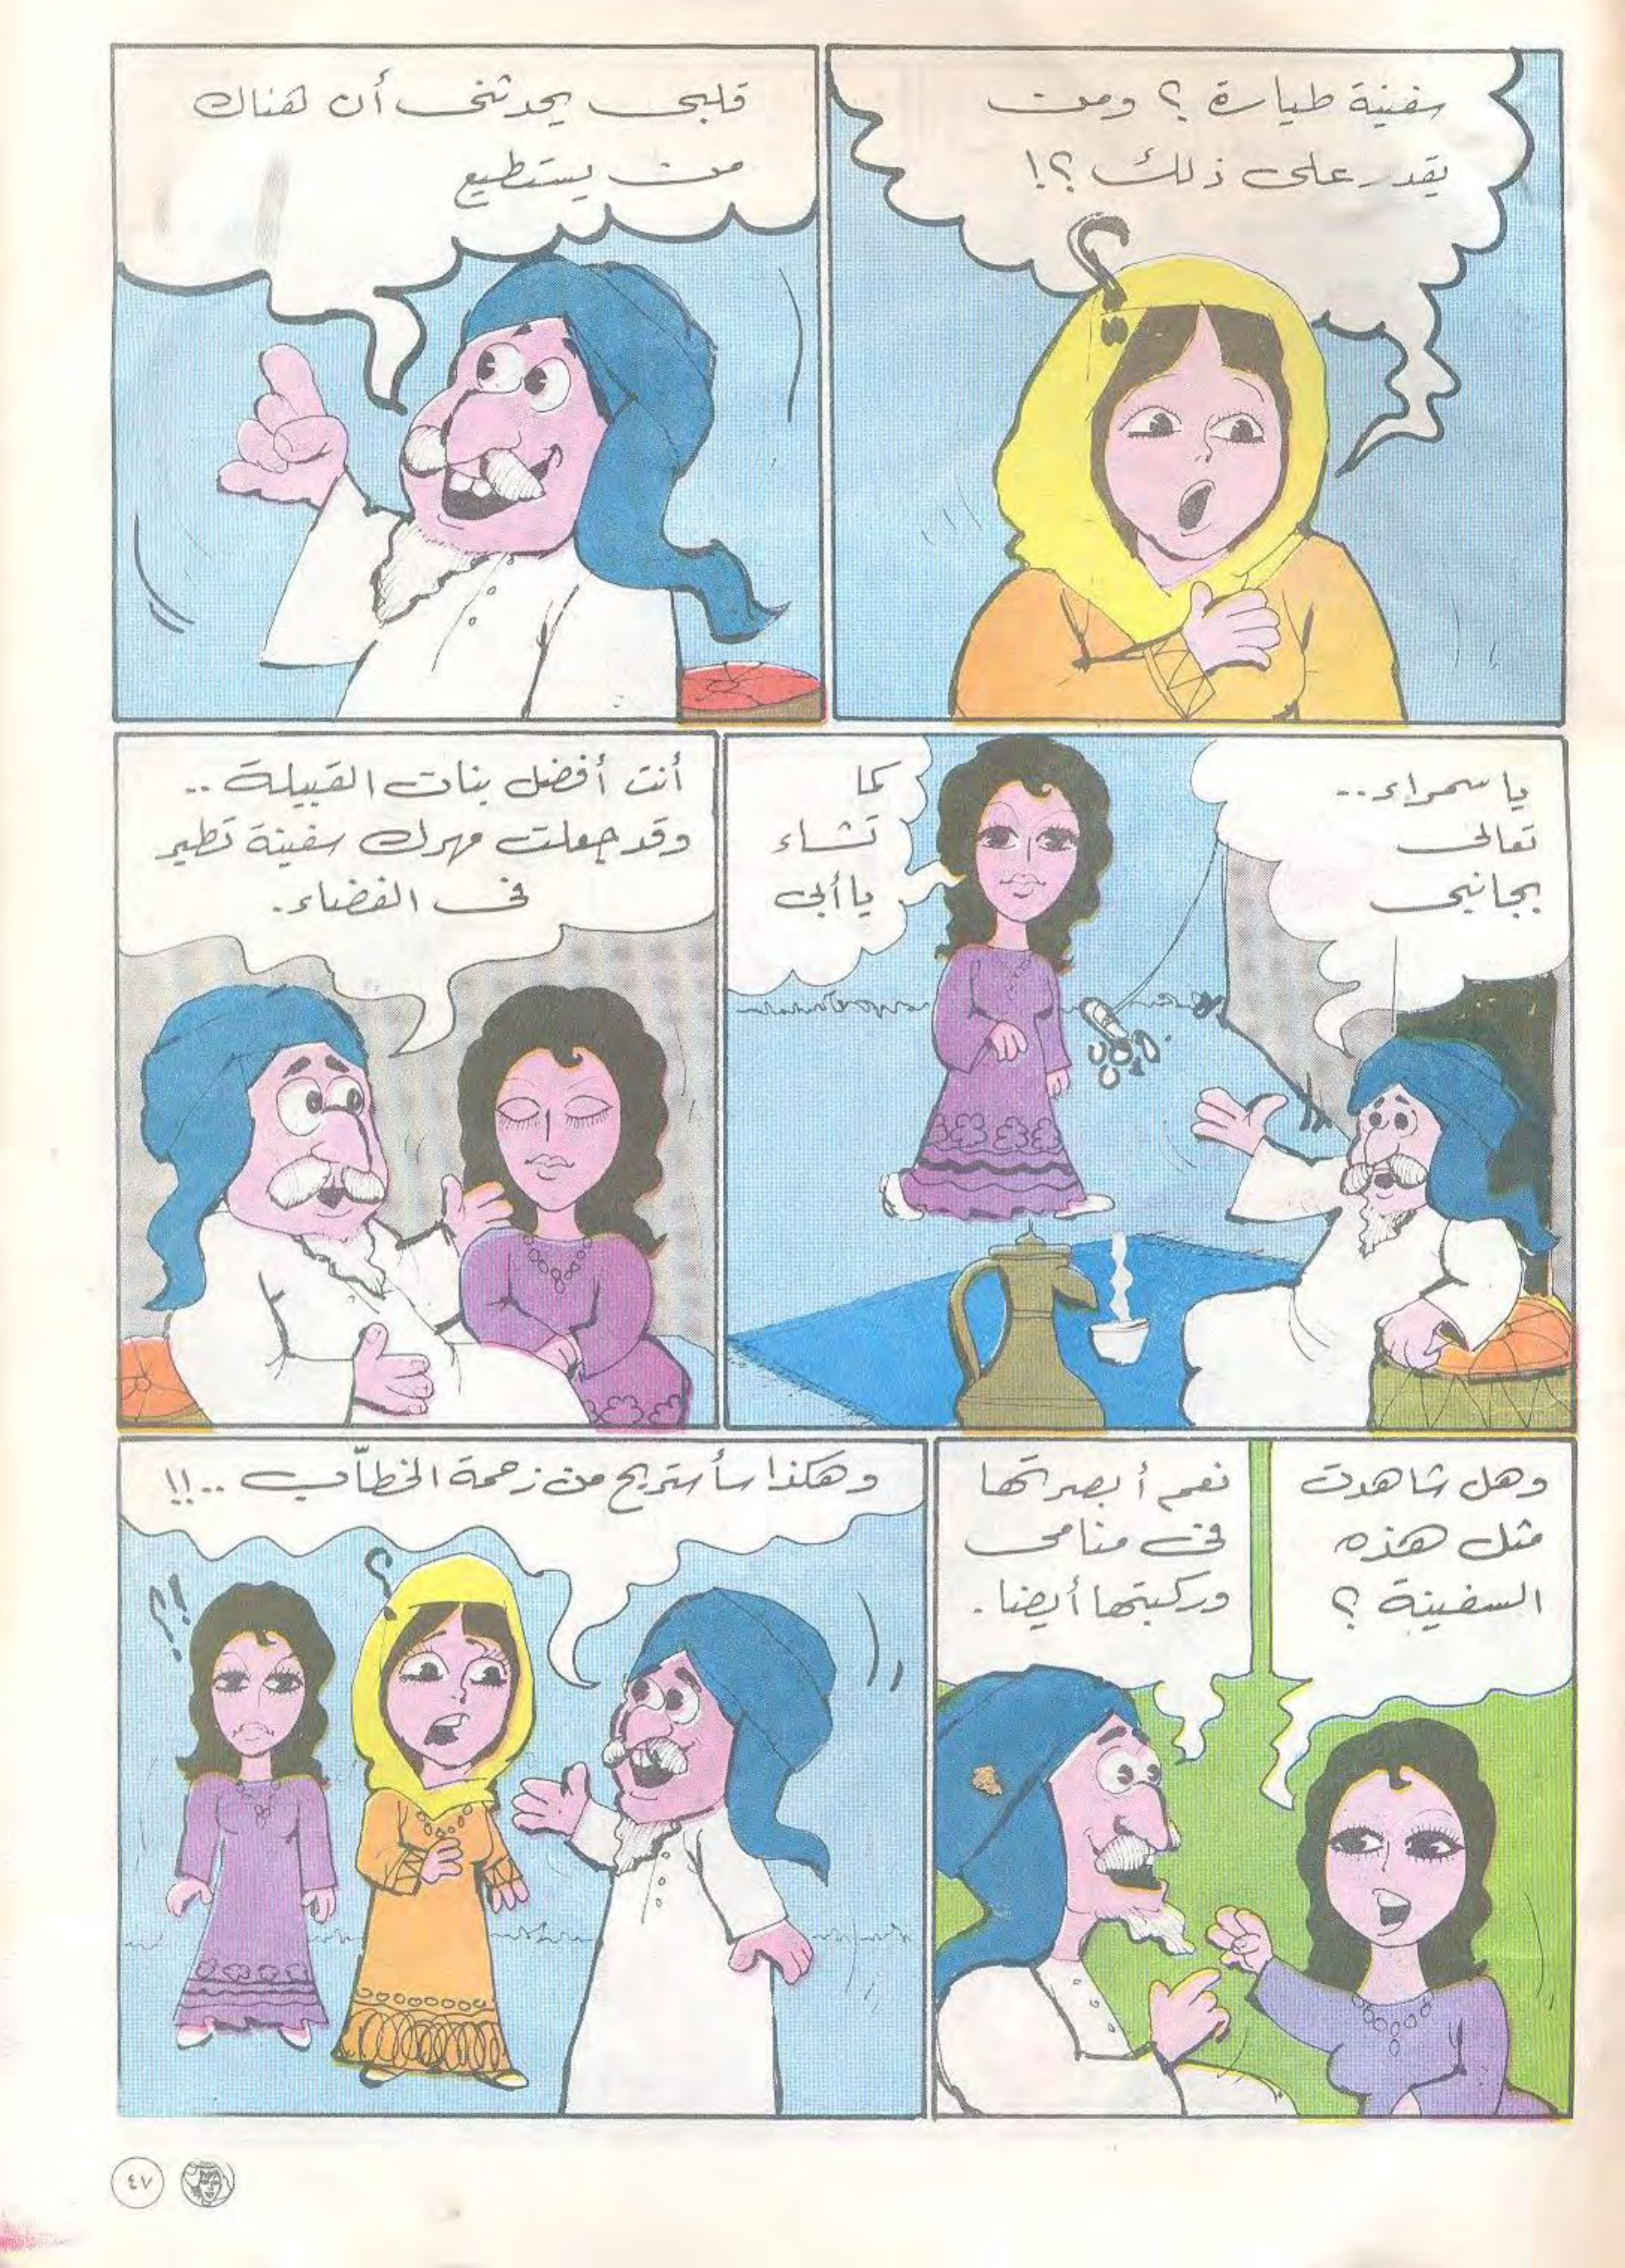 سفينة طيارة ؟ ومن
يقدر على ذلك ؟!
قلبى يحدثنى أن هناك
من يستطيع
يا سمراء..
تعالى
بجانبى
كما
تشاء
يا أبى
أنت أفضل بنات القبيلة ..
وقد جعلت مهرك سفينة تطير
فى الفضاء.
وهل شاهدت
مثل هذه
السفينة ؟
نعم أبصرتها
فى منامى
وركبتها أيضا.
وهكذا سأستريح من زحمة الخطّاب ..!!
٤٧